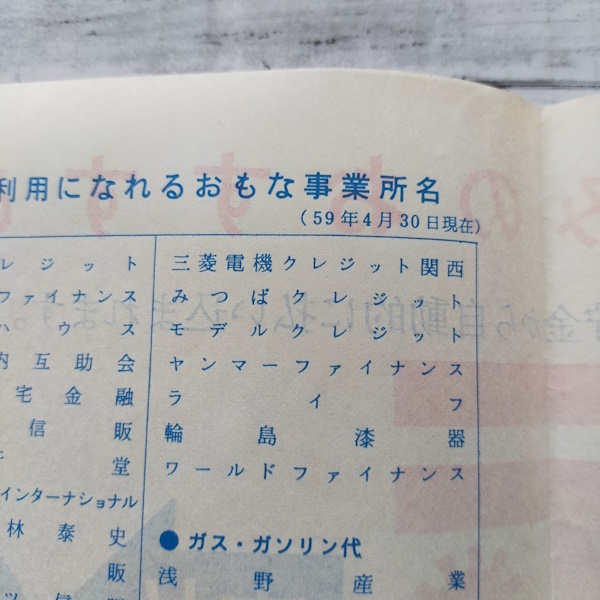 利用になれるおもな事業所名
(59年4月30日現在)
レジット
ファイナンス
ハウス
内互助会
宅金融
信販
堂
インターナショナル
林泰史
販
三菱電機クレジット関西
みつばクレジット
モデルクレジット
ヤンマーファイナンス
ライフ
輪島漆器
ワールドファイナンス
●ガス・ガソリン代
浅野産業